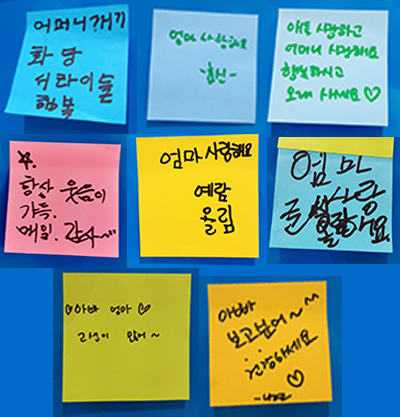 어머니께
화 당
행복
엄마 사랑해요
아들 사랑하고
어머니 사랑해요
행복하시고
오래 사세요♡
항상 웃음이
가득.
매일. 감사~
엄마 사랑해요
예람
올림
엄마
사랑
♡아빠 엄마♡
고생이 많어~
아빠
보고싶어~
건강하세요
♡